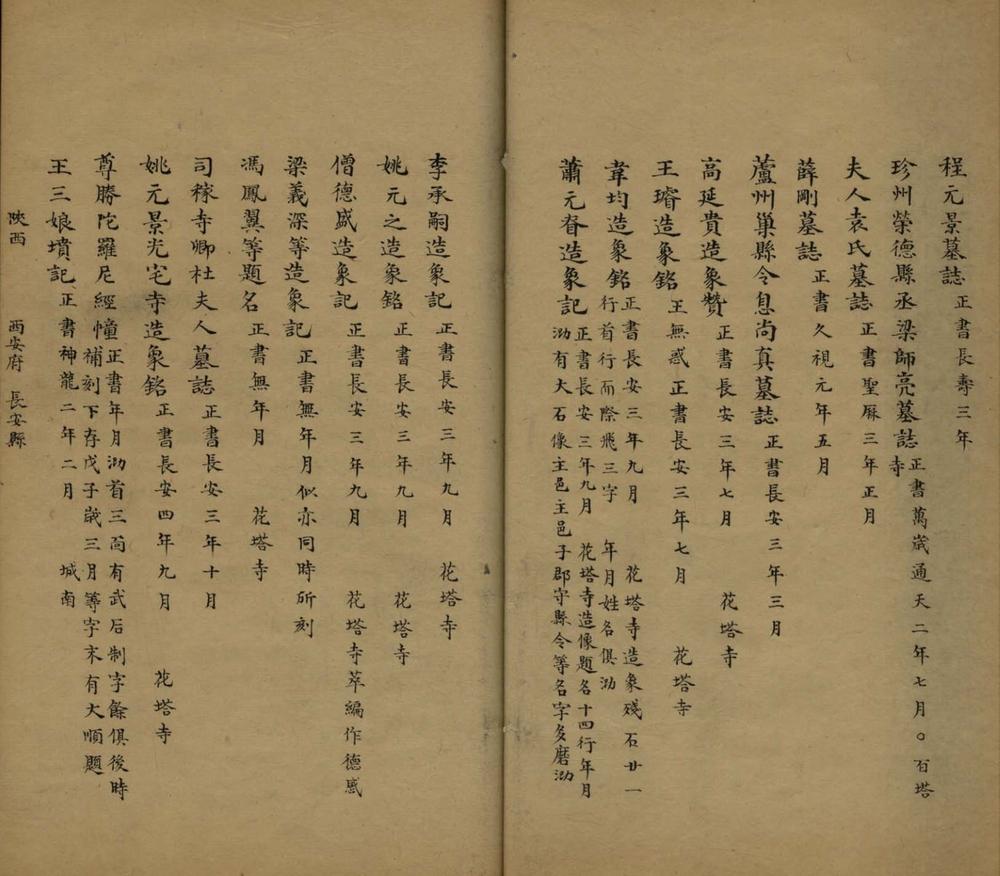 程元景墓誌 正書長壽三年
珍州榮德縣丞梁師亮墓誌 正書萬歲通天二年七月○百塔寺
夫人袁氏墓誌 正書聖厤三年正月
薛剛墓誌 正書久視元年五月
蘆州巢縣令息尚真墓誌 正書長安三年三月
高延貴造象贊 正書長安三年七月 花塔寺
王璿造象銘 王無惑正書長安三年七月 花塔寺
韋均造象銘 正書長安三年九月 花塔寺造象殘石廿一
行首行而際飛三字 年月姓名俱泐
蕭元眘造象記 正書長安三年九月 花塔寺造像題名十四行年月
泐有大石像主邑主邑子郡守縣令等名字多磨泐
李承嗣造象記 正書長安三年九月 花塔寺
姚元之造象銘 正書長安三年九月 花塔寺
僧德盛造象記 正書長安三年九月 花塔寺萃編作德感
梁義深等造象記 正書無年月似亦同時所刻
馮鳳翼等題名 正書無年月 花塔寺
司稼寺卿杜夫人墓誌 正書長安三年十月
姚元景光宅寺造象銘 正書長安四年九月 花塔寺
尊勝陀羅尼經幢 正書年月泐首三面有武后制字餘俱後時
補刻下存戊子歲三月等字末有大順題
王三娘墳記 正書神龍二年二月 城南
陝西 西安府 長安縣